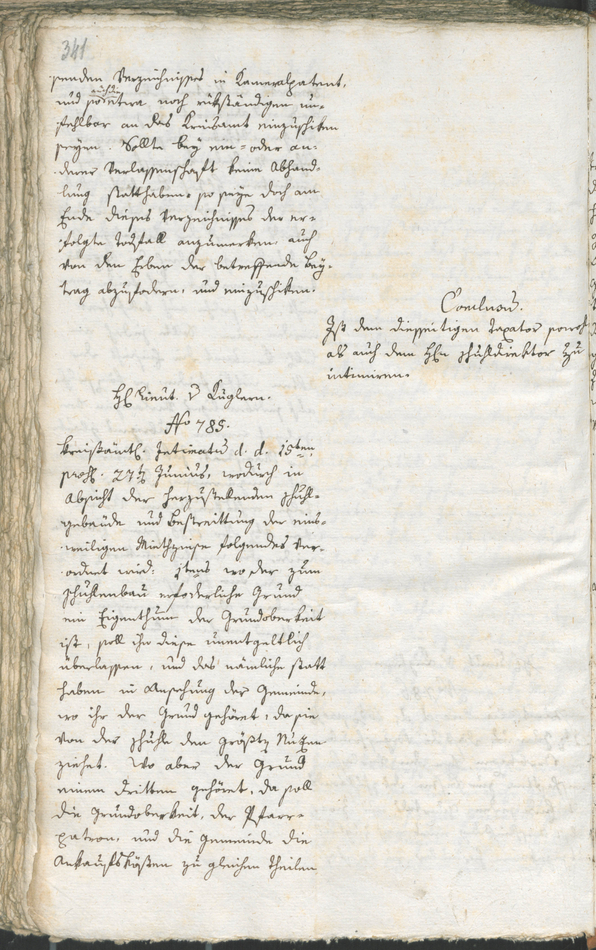 341
senden Verzeichnisses in Kameralpatent,
und noch rükständigen un-
fehlbar an das Kreisamt einzuschiken
seyen. Sollte bey ein- oder an-
derer Verlassenschaft keine Abhand-
lung statthaben, so seye doch am
Ende dieses Verzeichnisses der er-
folgte Todfall anzumerken, auch
von den Erben der betreffende Bey-
trag abzufodern, und einzuschiken.
Conclusu.
Ist dem diesseitigen Taxator sowohl
als auch dem Hrn Schuldirektor zu
intimiren.
H. Lieut. v Kuglern.
No 785.
Kreisämtl. Intimatu d. d. 15ten
präs. 27t Junius, wodurch in
Absicht der herzustekenden Schul-
gebäude und Bestreittung der eins-
weiligen Miethzinse folgendes ver-
ordnet wird: 1tens wo der zum
Schulenbau erfoderliche Grund
ein Eigenthum der Grundoberkeit
ist, soll ihn diese unentgeltlich
überlassen, und das nämliche statt
haben in Ansehung der Gemeinde,
wo ihr der Grund gehöret, da sie
von der Schule den größten Nuzen
ziehet. Wo aber der Grund
einem dritten gehöret, da soll
die Grundoberkeit, der Pfarr-
patron, und die Gemeinde die
Ankaufskösten zu gleichen theilen